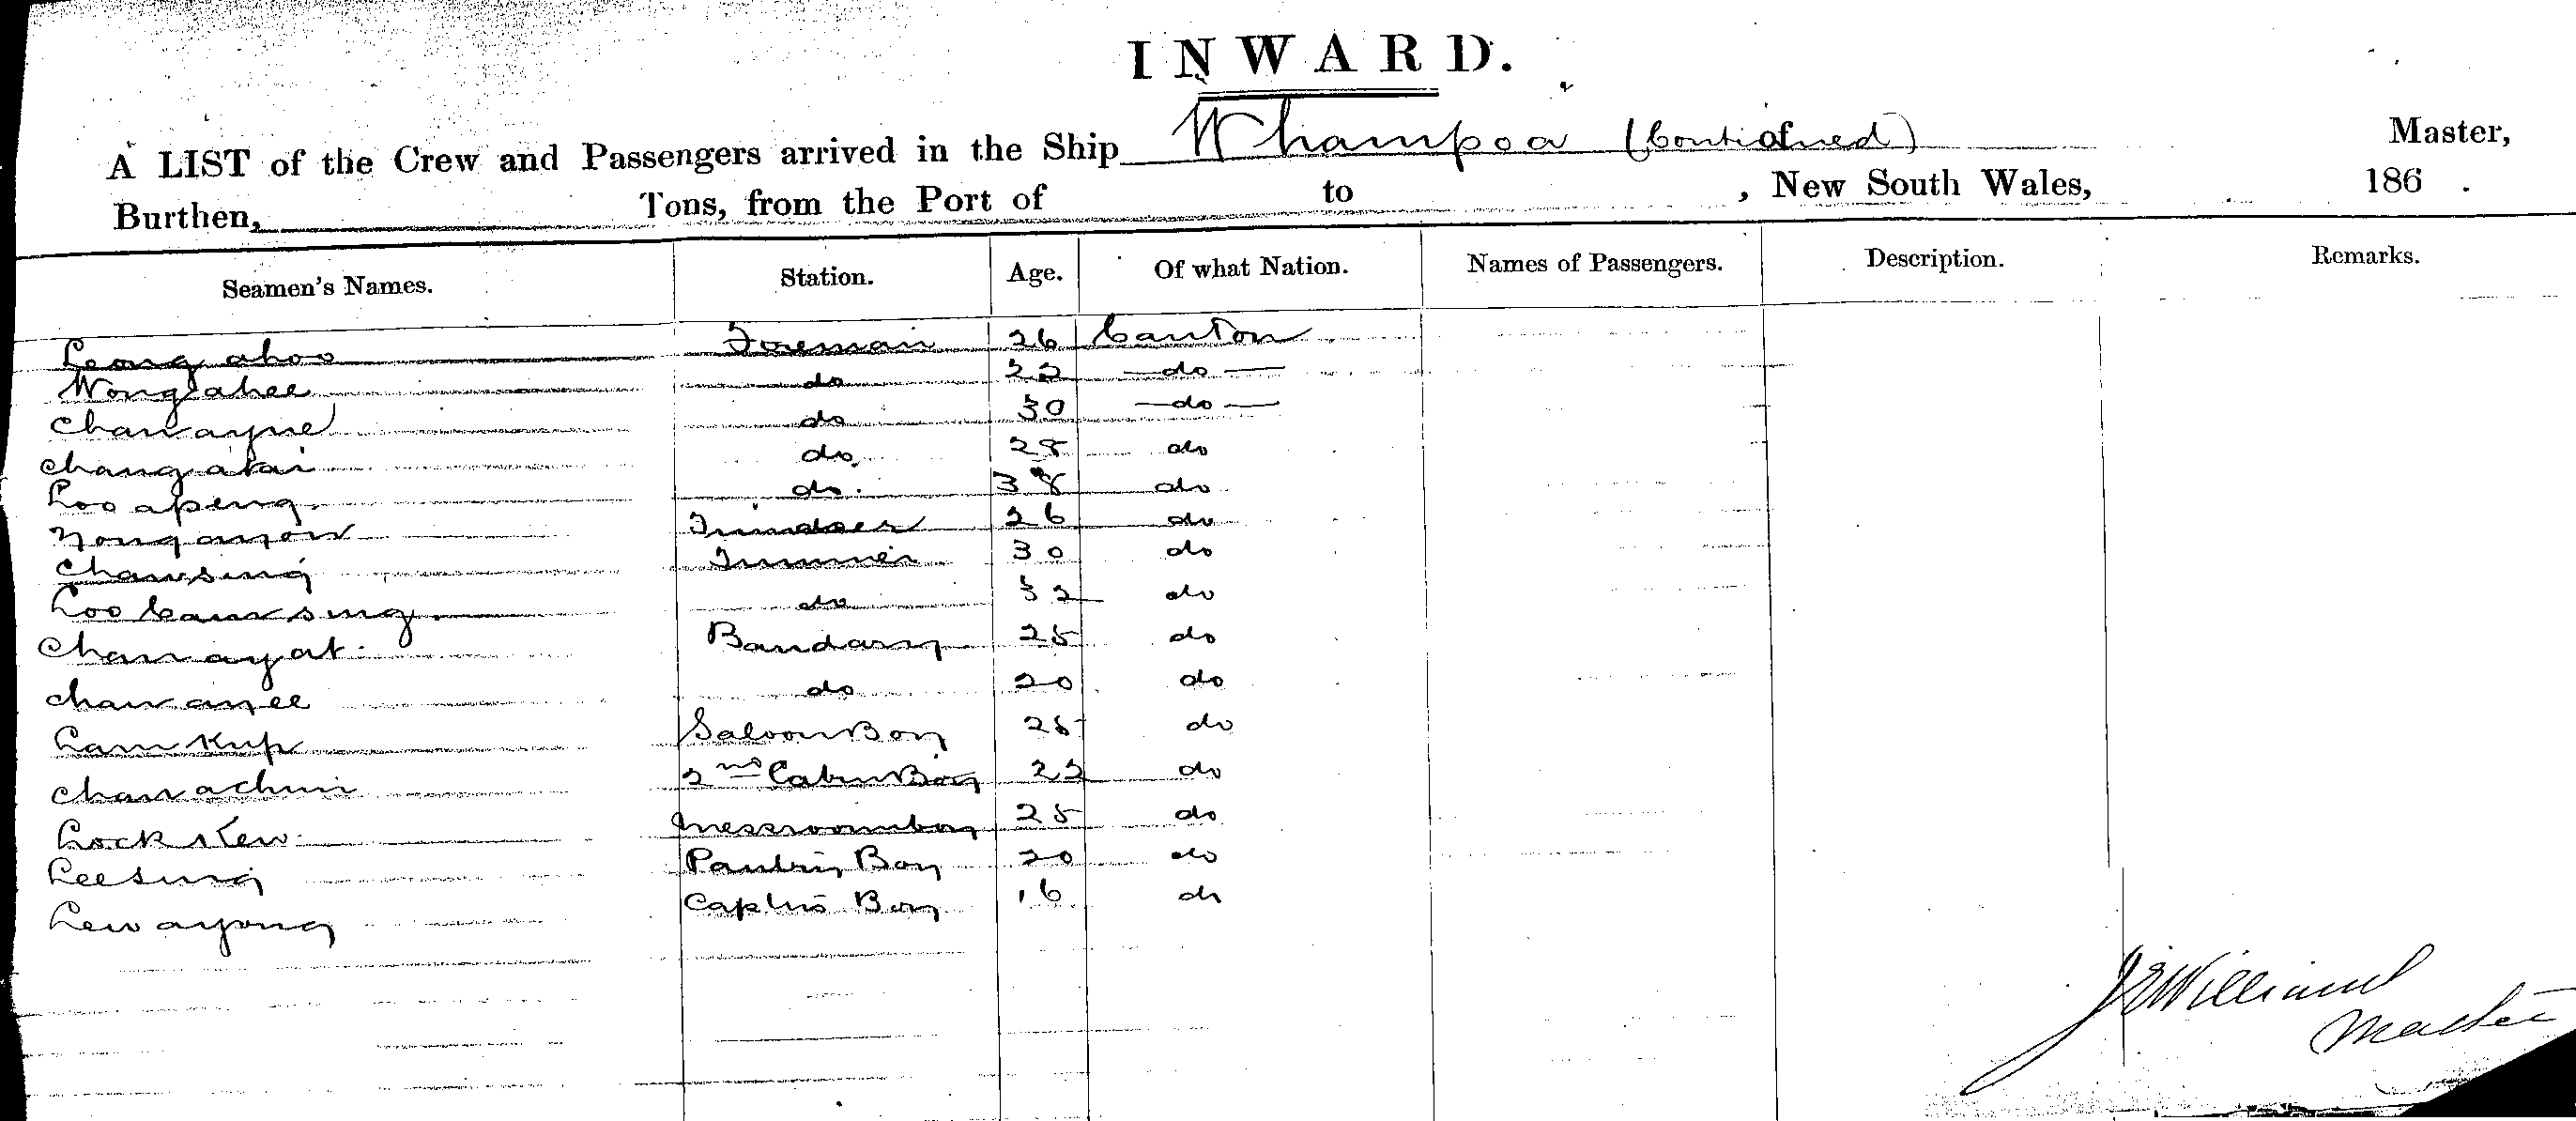 INWARD.
A LIST of the Crew and Passengers arrived in the Ship Whampoa (Continued) of Master,
Burthen, Tons, from the Port of to , New South Wales, 186 .
Seamen's Names. Station. Age. Of what Nation. Names of Passengers. Description. Remarks.
Leong ahoo Foreman 26 Canton
Wong ahee do 22 do
Chan ayne do 30 do
Chang atai do 28 do
Loo apeng do. 38 do
26 do
Chan sing 30 do
Loo Cam sing do 32 do
Chan ayat Bandary 25 do
Chan ayee do 20 do
Lam Kup Saloon Boy 25 do
Chan achui 2nd Cabin Boy 22 do
Lock Kew Messroomboy 25 do
Lee sing Pantry Boy 20 do
Lew ayong Captns Boy 16 do
Williams
Master